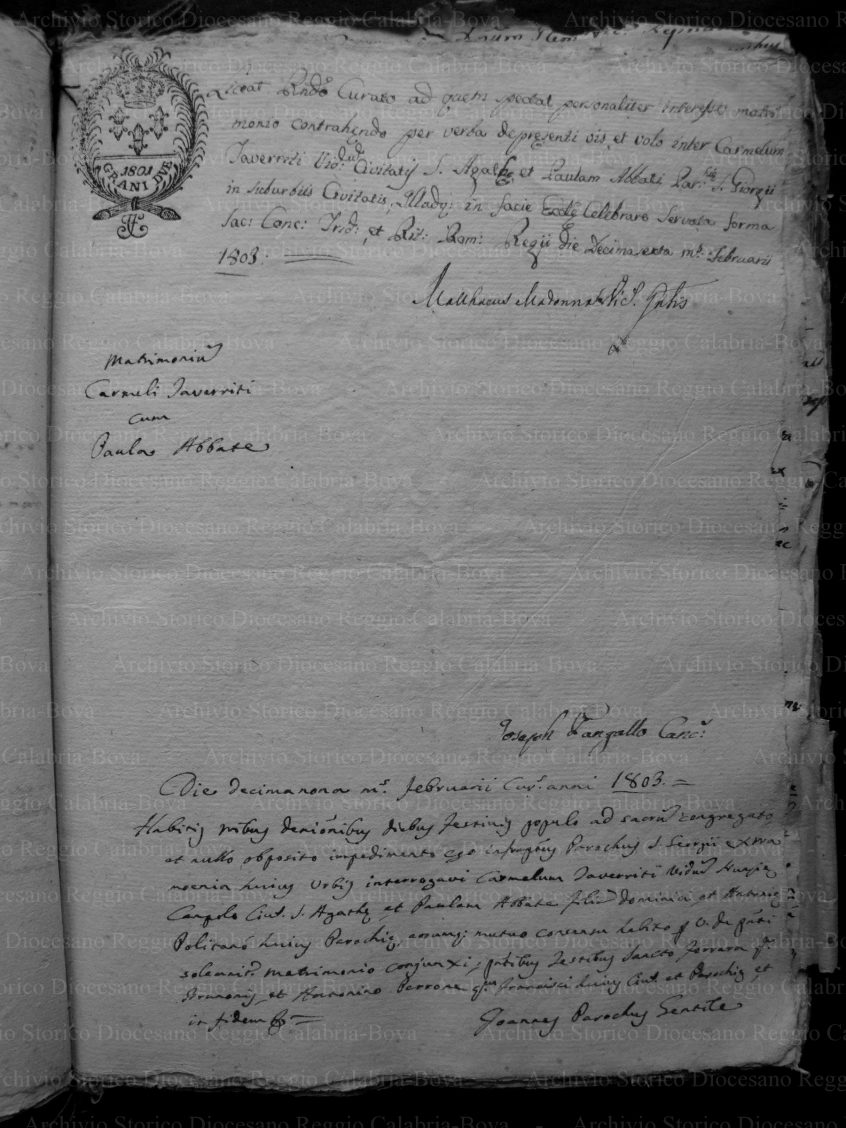 1801
GRANI DVE
Liceat Rndo Curato ad quem spectat personaliter interesse matri
monio contrahendo per verba de presenti vis, et volo inter Carmelum
Taverriti Vid. Civitatis S. Agathę et Paulam Abbati Par. S. Giorgii
in suburbiis Civitatis, Illudq; in facie Eccle Celebrare servata forma
Sac: Conc: Trid: et Rit: Rom: Regii die Decima sexta ms. Februarii
1803.
Matthaeus Madonna Vic. Gnlis
Matrimoniu
Carmeli Taverriti
cum
Paula Abbate
Joseph Canc.
Die decimanona ms. februarii Cur. anni 1803. =
Habitis tribus denũonibus diebus festivis populo ad sacru congregato
et nullo opposito impedimento ego infrõptus Parochus S. Georgii extra
moenia hujus Urbis interrogavi Carmelum Taverriti Vidu
Civit. S. Agathę, et Paulam Abbate filia Dominici, et Antonię
Politano hujus Parochię, eorumq; mutuo consensu habito p V. de pnti
solemnitr Matrimonio conjunxi; pntibus testibus Sancto Ferrara q.
Brunonis, et Antonino Perrone qm Francisci hujus Civit. et Parochię et
in fidem &c =
Joannes Parochus Gentile